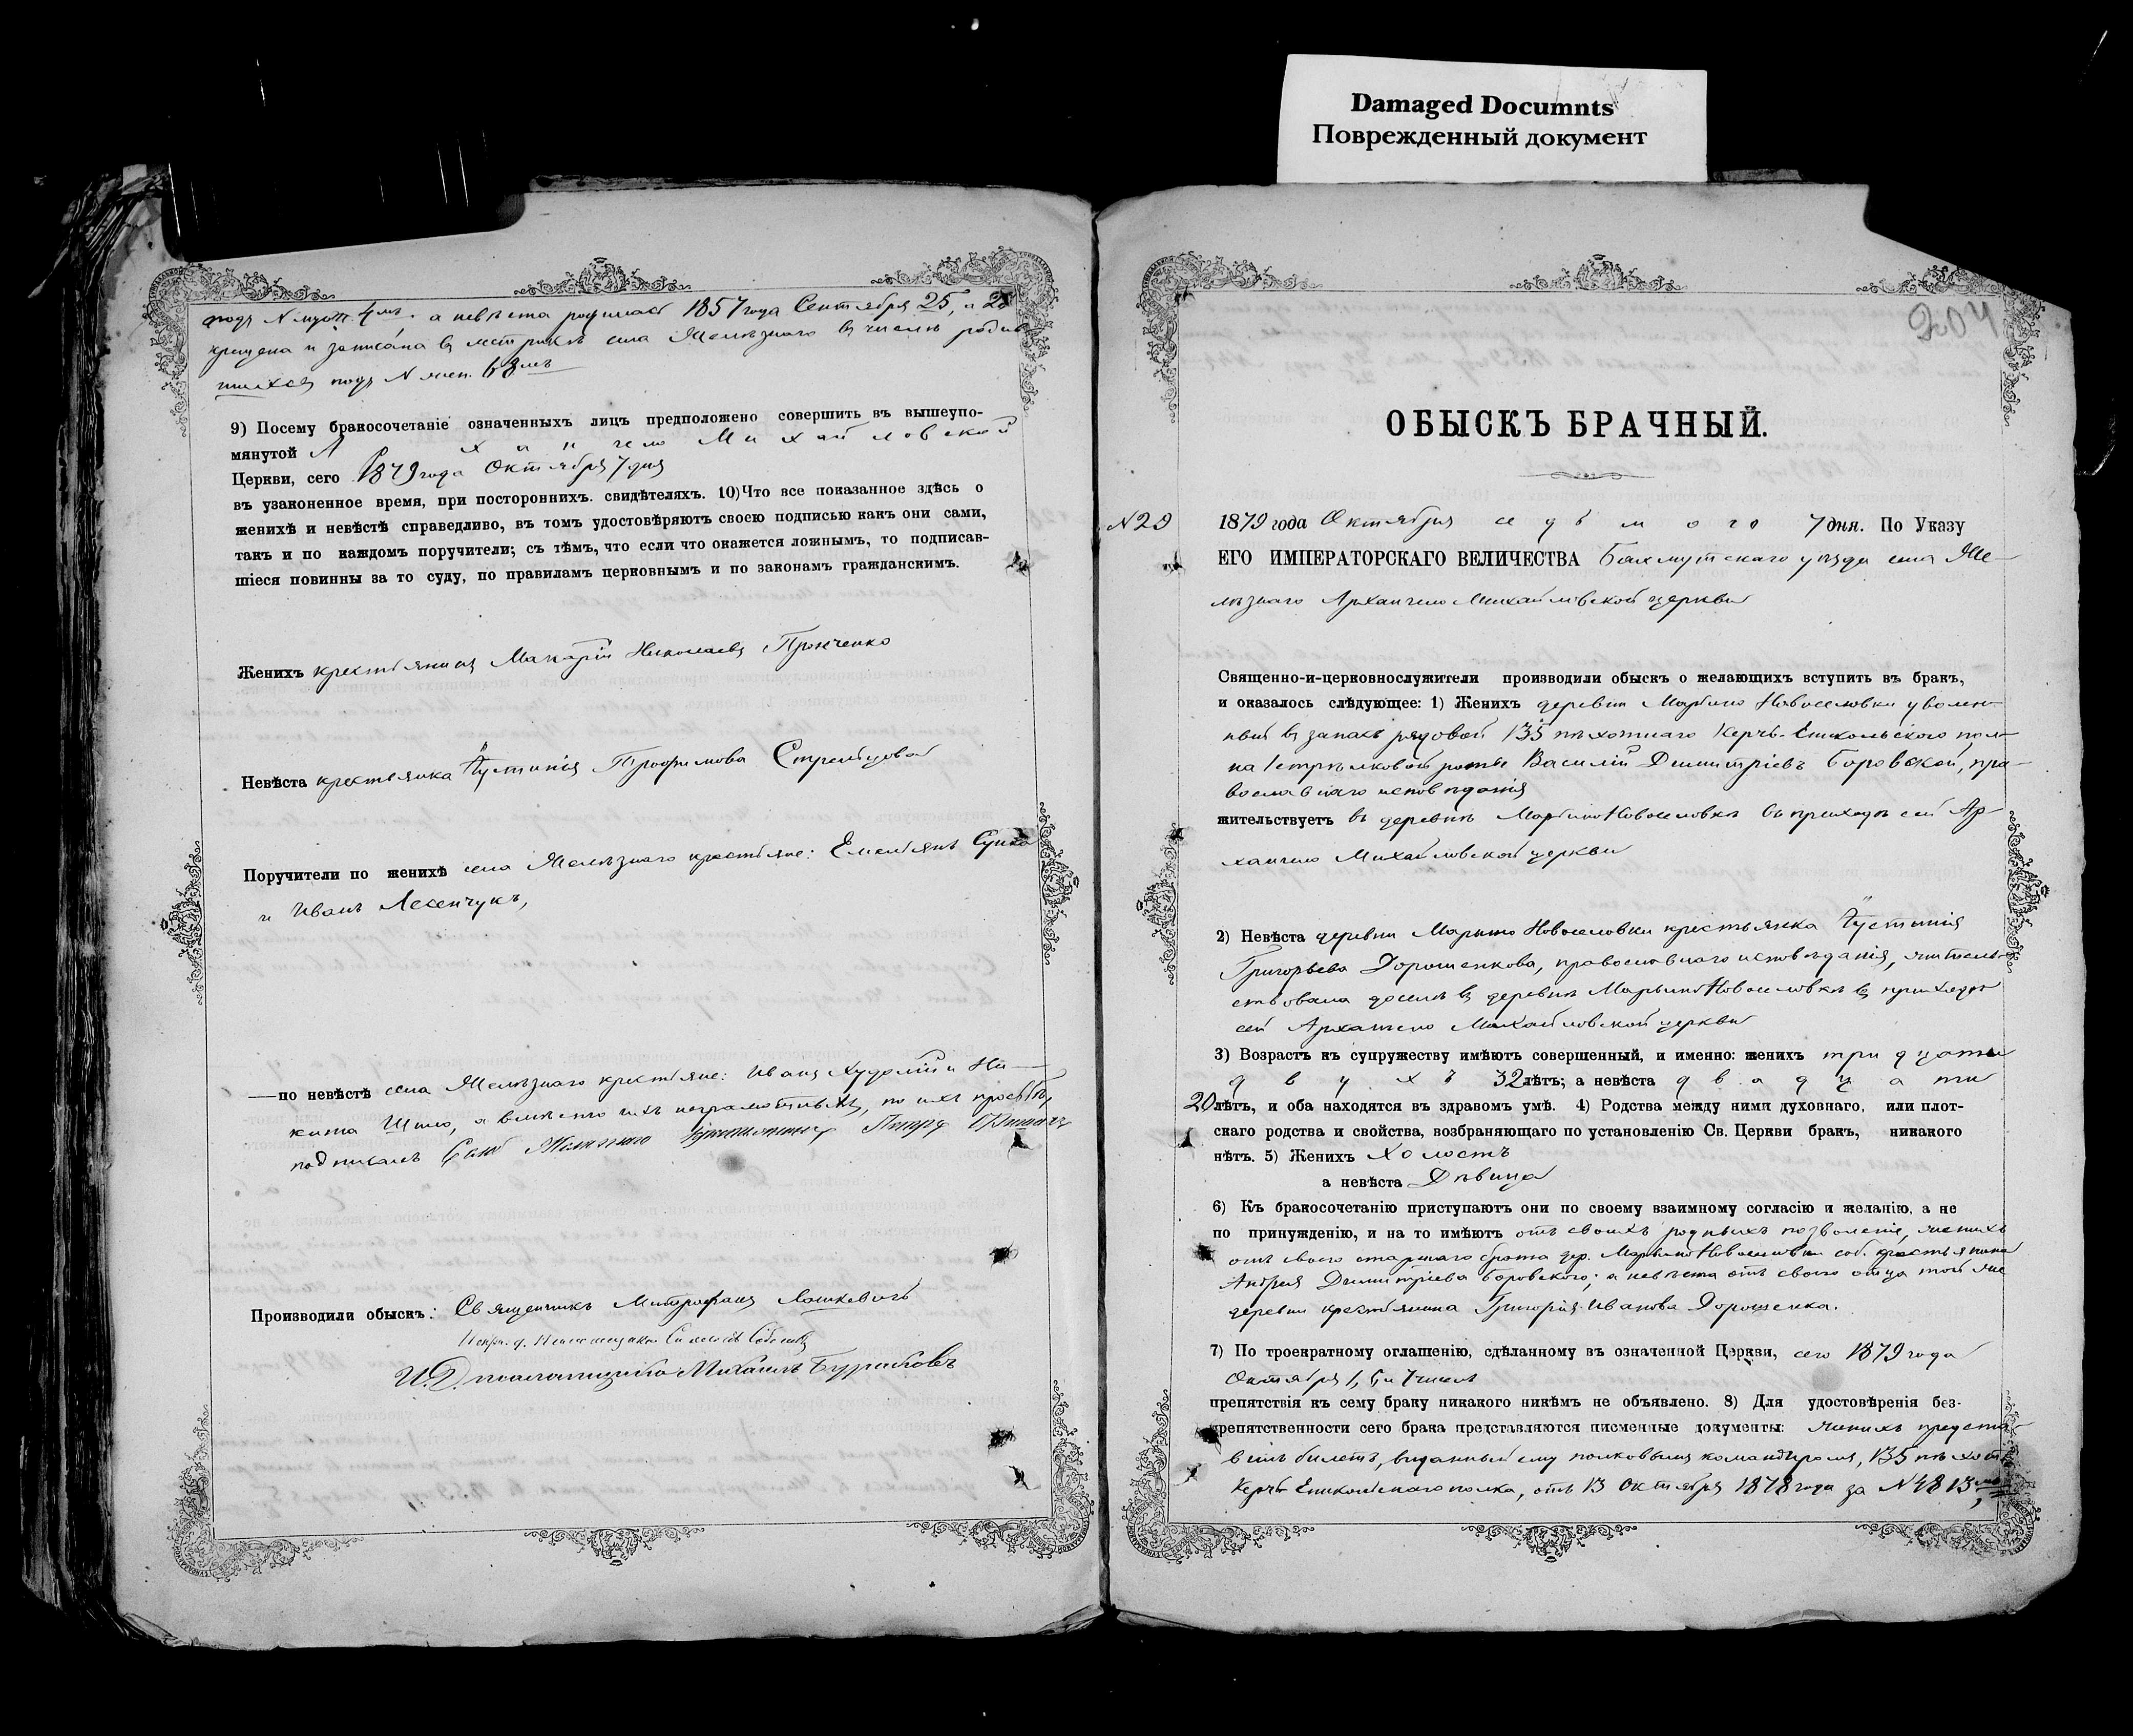 Damaged Documnts
Поврежденный документ
подъ N муж. 4мъ. а невѣста родилась 1857 года Сентября 25, а 28
крещена и записана въ метрикѣ села Желѣзнаго въ числѣ родив
шихся подъ N жен. 68мъ
9) Посему бракосочетаніе означенныхъ лицъ предположено совершить въ вышеупо-
мянутой Архангело Михайловской
Церкви, сего 1879 года Октября 7 дня
въ узаконенное время, при постороннихъ. свидѣтеляхъ. 10) Что все показанное здѣсь о
женихѣ и невѣстѣ справедливо, въ томъ удостовѣряютъ своею подписью какъ они сами,
такъ и по каждомъ поручители; съ тѣмъ, что если что окажется ложнымъ, то подписав-
шіеся повинны за то суду, по правиламъ церковнымъ и по законамъ гражданскимъ.
Женихъ крестьянинъ Макарій Николаевъ Пронченко
Невѣста крестьянка Іустинія Трофимова Стрельцова
Поручители по женихѣ села Желѣзнаго крестьяне: Емельянъ
и Иванъ Лесенчукъ,
—по невѣстѣ села Желѣзнаго крестьяне: Иванъ Худолій и Ни-
кита Шило, а вмѣсто ихъ неграмотныхъ, по ихъ прозьбѣ,
подписалъ Села Желѣзнаго Петръ
Производили обыскъ: Священникъ Митрофанъ Лашкевичъ
И. Д. псаломщика Михаилъ Бурлаковъ
204
ОБЫСКЪ БРАЧНЫЙ.
N 29 1879 года Октября седьмого 7 дня. По Указу
ЕГО ИМПЕРАТОРСКАГО ВЕЛИЧЕСТВА Бахмутскаго уѣзда села Же-
лѣзнаго Архангело Михайловской церкви
Священно-и-церковнослужители производили обыскъ о желающихъ вступить въ бракъ,
и оказалось слѣдующее: 1) Женихъ деревни Марьино Новоселовки уволен-
ный въ запасъ рядовой 135 пѣхотнаго Керчь-Еникольскаго пол-
ка 1 стрѣлковой роты Василій Димитріевъ Боровской, пра-
вославнаго исповѣданія
жительствуетъ въ деревнѣ Марьино Новоселовкѣ въ приходѣ сей Ар-
хангело Михайловской церкви
2) Невѣста деревни Марьино Новоселовки крестьянка Іустинія
Григорьева Дорошенкова, православнаго исповѣданія, житель-
ствовала доселѣ въ деревнѣ Марьино Новоселовкѣ въ приходѣ
сей Архангело Михайловской церкви
3) Возрастъ къ супружеству имѣютъ совершенный, и именно: женихъ тридцати
двухъ 32 лѣтъ; а невѣста двадцати
20 лѣтъ, и оба находятся въ здравомъ умѣ. 4) Родства между ними духовнаго, или плот-
скаго родства и свойства, возбраняющаго по установленію Св. Церкви бракъ, никакого
нѣтъ. 5) Женихъ Холостъ
а невѣста Дѣвица
6) Къ бракосочетанію приступаютъ они по своему взаимному согласію и желанію, а не
по принужденію, и на то имѣютъ отъ своихъ родныхъ позволеніе, женихъ
отъ своего старшаго брата дер. Марьино Новоселовки соб. крестьянина
Андрея Димитріева Боровского; а невѣста отъ своего отца той же
деревни крестьянина Григорія Иванова Дорошенка.
7) По троекратному оглашенію, сдѣланному въ означенной Церкви, сего 1879 года
Октября 1, 5 и 7 чиселъ
препятствія къ сему браку никакого никѣмъ не объявлено. 8) Для удостовѣренія без-
препятственности сего брака представляются писменные документы: женихъ предста-
вилъ билетъ, выданный ему полковымъ командиромъ, 135 пѣхот.
Керчь Еникольскаго полка, отъ 13 Октября 1878 года за N 4813мъ,